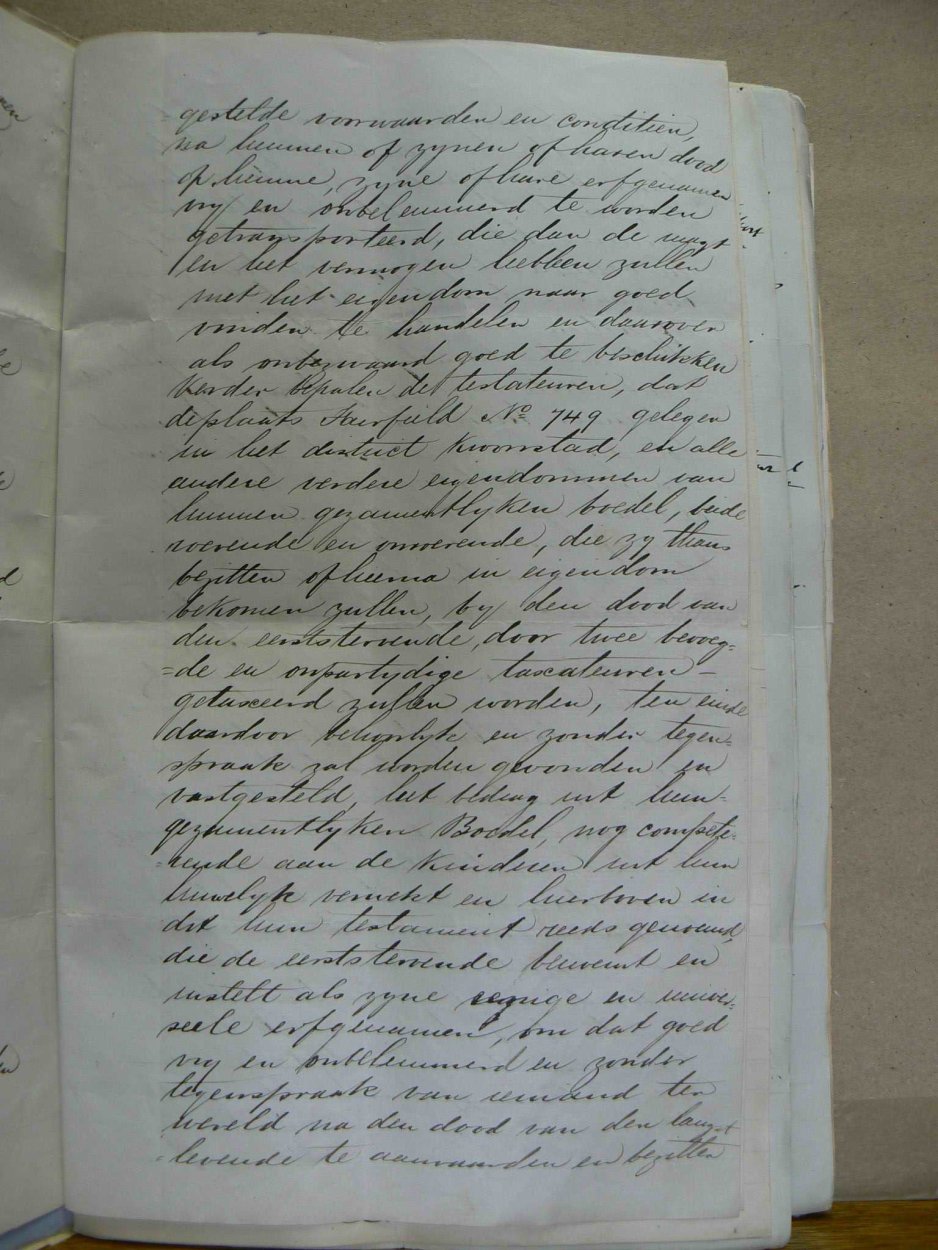 gestelde voorwaarden en conditien,
na hunnen of zynen of haren dood
op hunne, zyne of hare erfgenamen
vry en onbelemmerd te worden
getransporteerd, die dan de magt
en het vermogen hebben zullen
met het eigendom naar goed
vinden te handelen en daarover
als onbezwaard goed te beschikken
Verder bepalen de testateuren, dat
de plaats Fairfield No 749 gelegen
in het district Kroonstad, en alle
andere verdere eigendommen van
hunnen gezamentlyken boedel, beide
roerende en onroerende, die zy thans
bezitten of hierna in eigendom
bekomen zullen, by den dood van
den eerststervende, door twee bevoeg=
=de en onpartydige taxateuren
getaxeerd zullen worden, ten einde
daardoor behoorlyk en zonder tegen=
spraak zal worden gevonden en
vastgesteld, het bedrag uit hun
gezamentlyken Boedel, nog compete=
=rende aan de Kinderen uit hun
huwelyk verwekt en hierboven in
dit hun testament reeds genoemd,
die de eerststervende benoemt en
instelt als zyne eenige en univer=
seele erfgenamen, om dat goed
vry en onbelemmerd en zonder
tegenspraak van iemand ter
wereld na den dood van den langst
levende te aanvaarden en bezitten